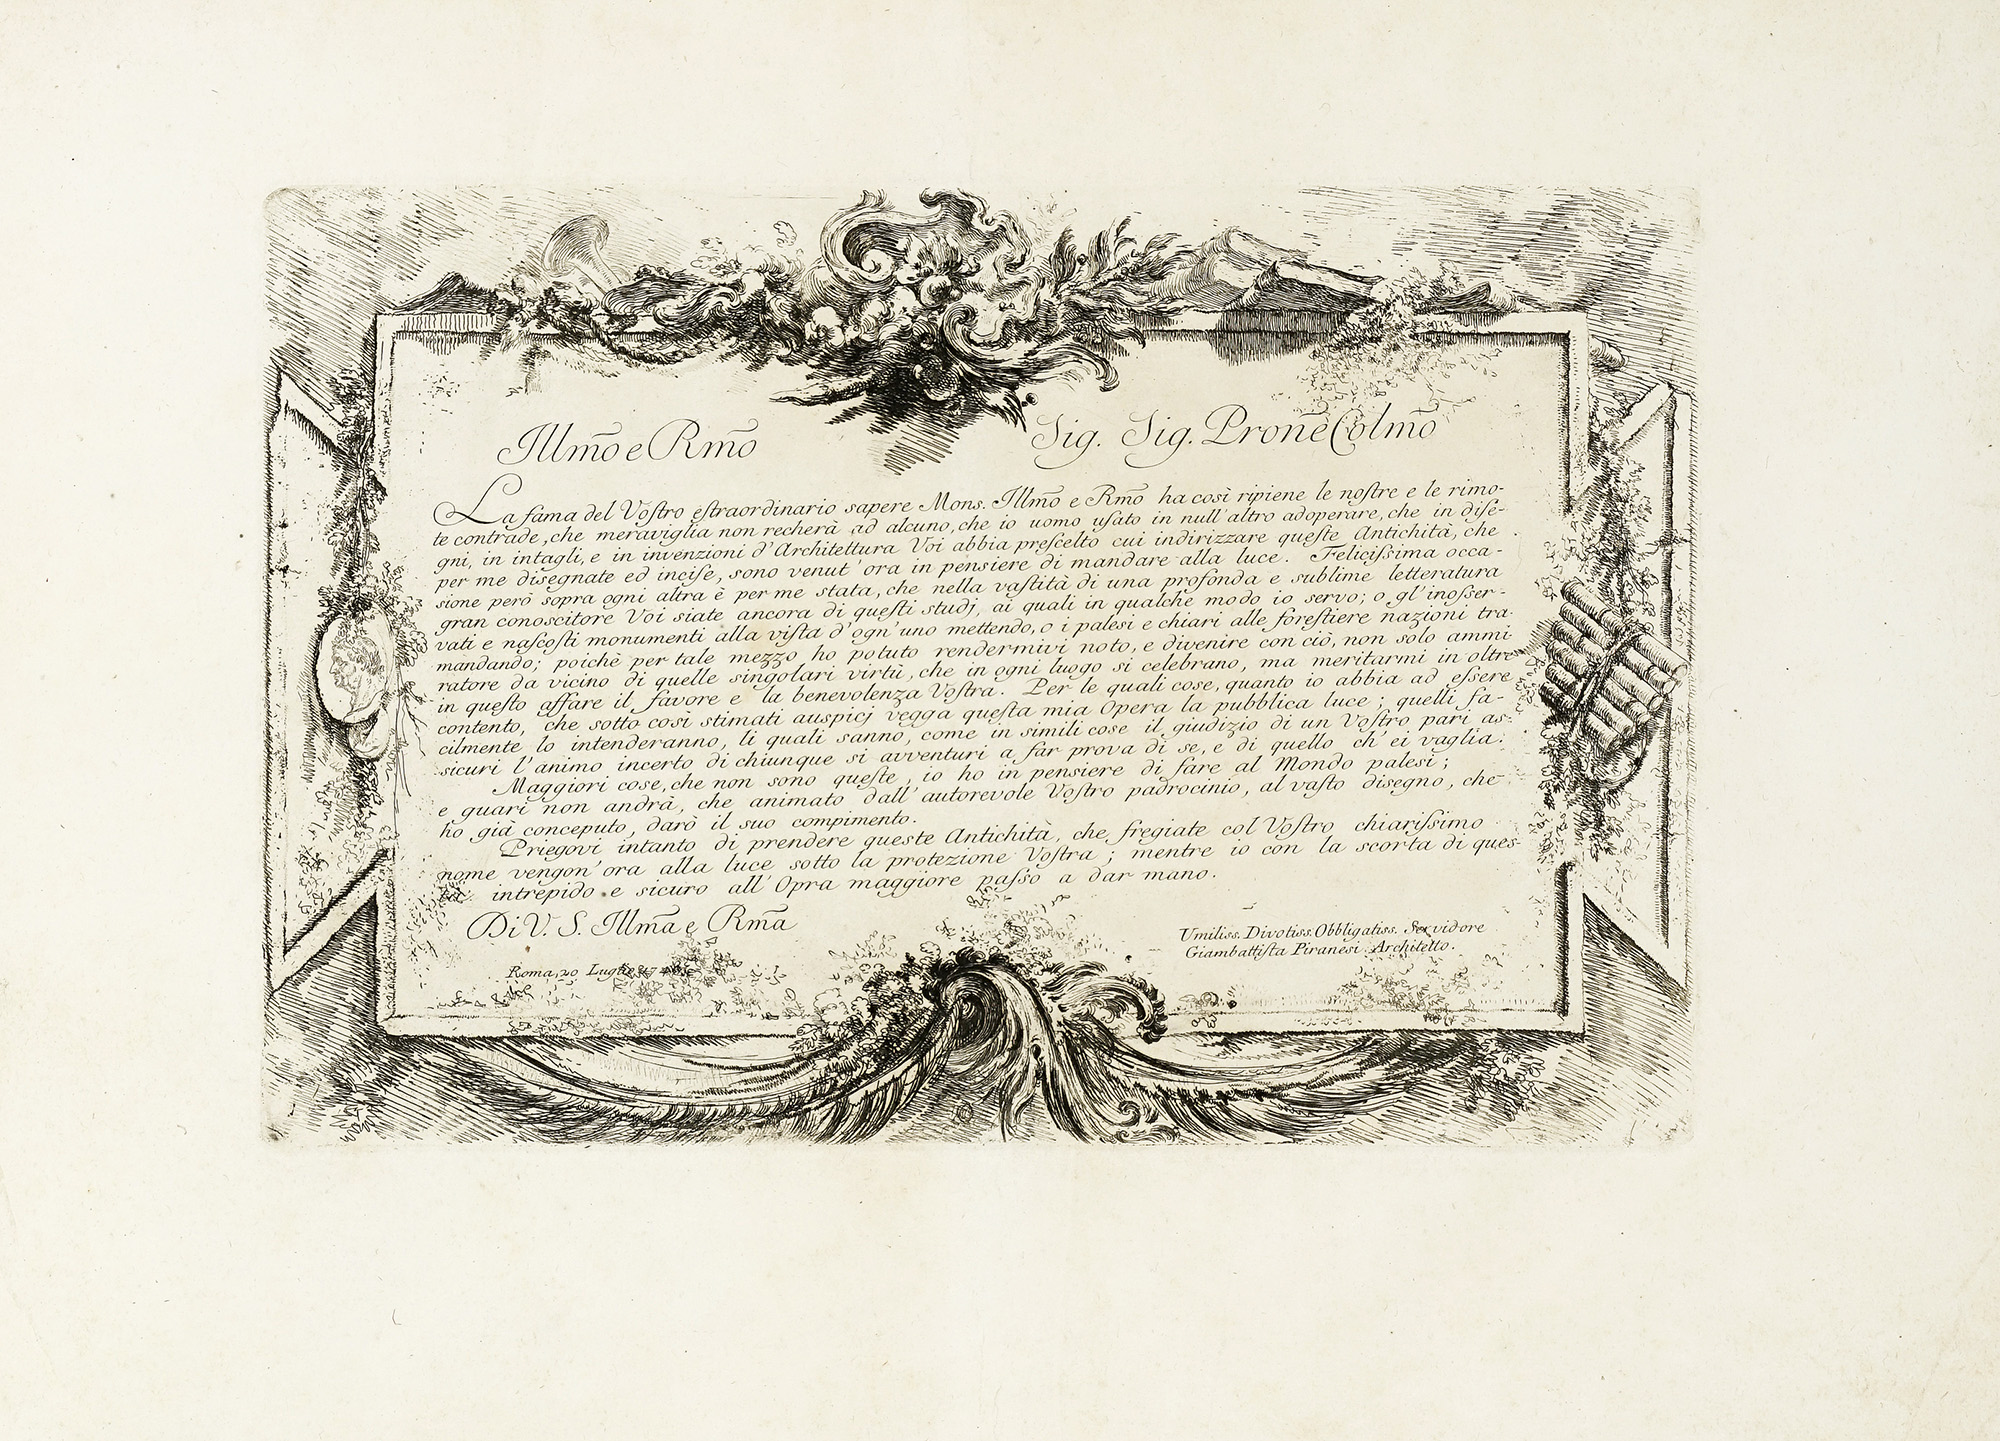 Illm̃o e Rm̃o Sig. Sig. Proñe Colm̃o
La fama del Vostro estraordinario sapere Mons. Illm̃o e Rm̃o ha così ripiene le nostre e le rimo-
te contrade, che meraviglia non recherà ad alcuno, che io uomo usato in null'altro adoperare, che in dise-
gni, in intagli, e in invenzioni d'Architettura Voi abbia prescelto cui indirizzare queste Antichità, che
per me disegnate ed incise, sono venut'ora in pensiere di mandare alla luce. Felicissima occa-
sione però sopra ogni altra è per me stata, che nella vastità di una profonda e sublime letteratura
gran conoscitore Voi siate ancora di questi studj, ai quali in qualche modo io servo; o gl'inosser-
vati e nascosti monumenti alla vista d'ogn'uno mettendo, o i palesi e chiari alle forestiere nazioni tra-
mandando; poichè per tale mezzo ho potuto rendermivi noto, e divenire con ciò, non solo ammi-
ratore da vicino di quelle singolari virtù, che in ogni luogo si celebrano, ma meritarmi in oltre
in questo affare il favore e la benevolenza Vostra. Per le quali cose, quanto io abbia ad essere
contento, che sotto così stimati auspicj vegga questa mia Opera la pubblica luce; quelli fa-
cilmente lo intenderanno, li quali sanno, come in simili cose il giudizio di un Vostro pari as-
sicuri l'animo incerto di chiunque si avventuri a far prova di se, e di quello ch'ei vaglia.
Maggiori cose, che non sono queste, io ho in pensiere di fare al Mondo palesi;
e guari non andrà, che animato dall'autorevole Vostro padrocinio, al vasto disegno, che
ho già conceputo, darò il suo compimento.
Priegovi intanto di prendere queste Antichità, che fregiate col Vostro chiarissimo
nome vengon'ora alla luce sotto la protezione Vostra; mentre io con la scorta di ques-
ta intrepido e sicuro all'Opra maggiore passo a dar mano.
Di V. S. Illm̃a e Rm̃a
Umiliss. Divotiss. Obbligatiss. Servidore
Giambattista Piranesi Architetto.
Roma, 20 Luglio